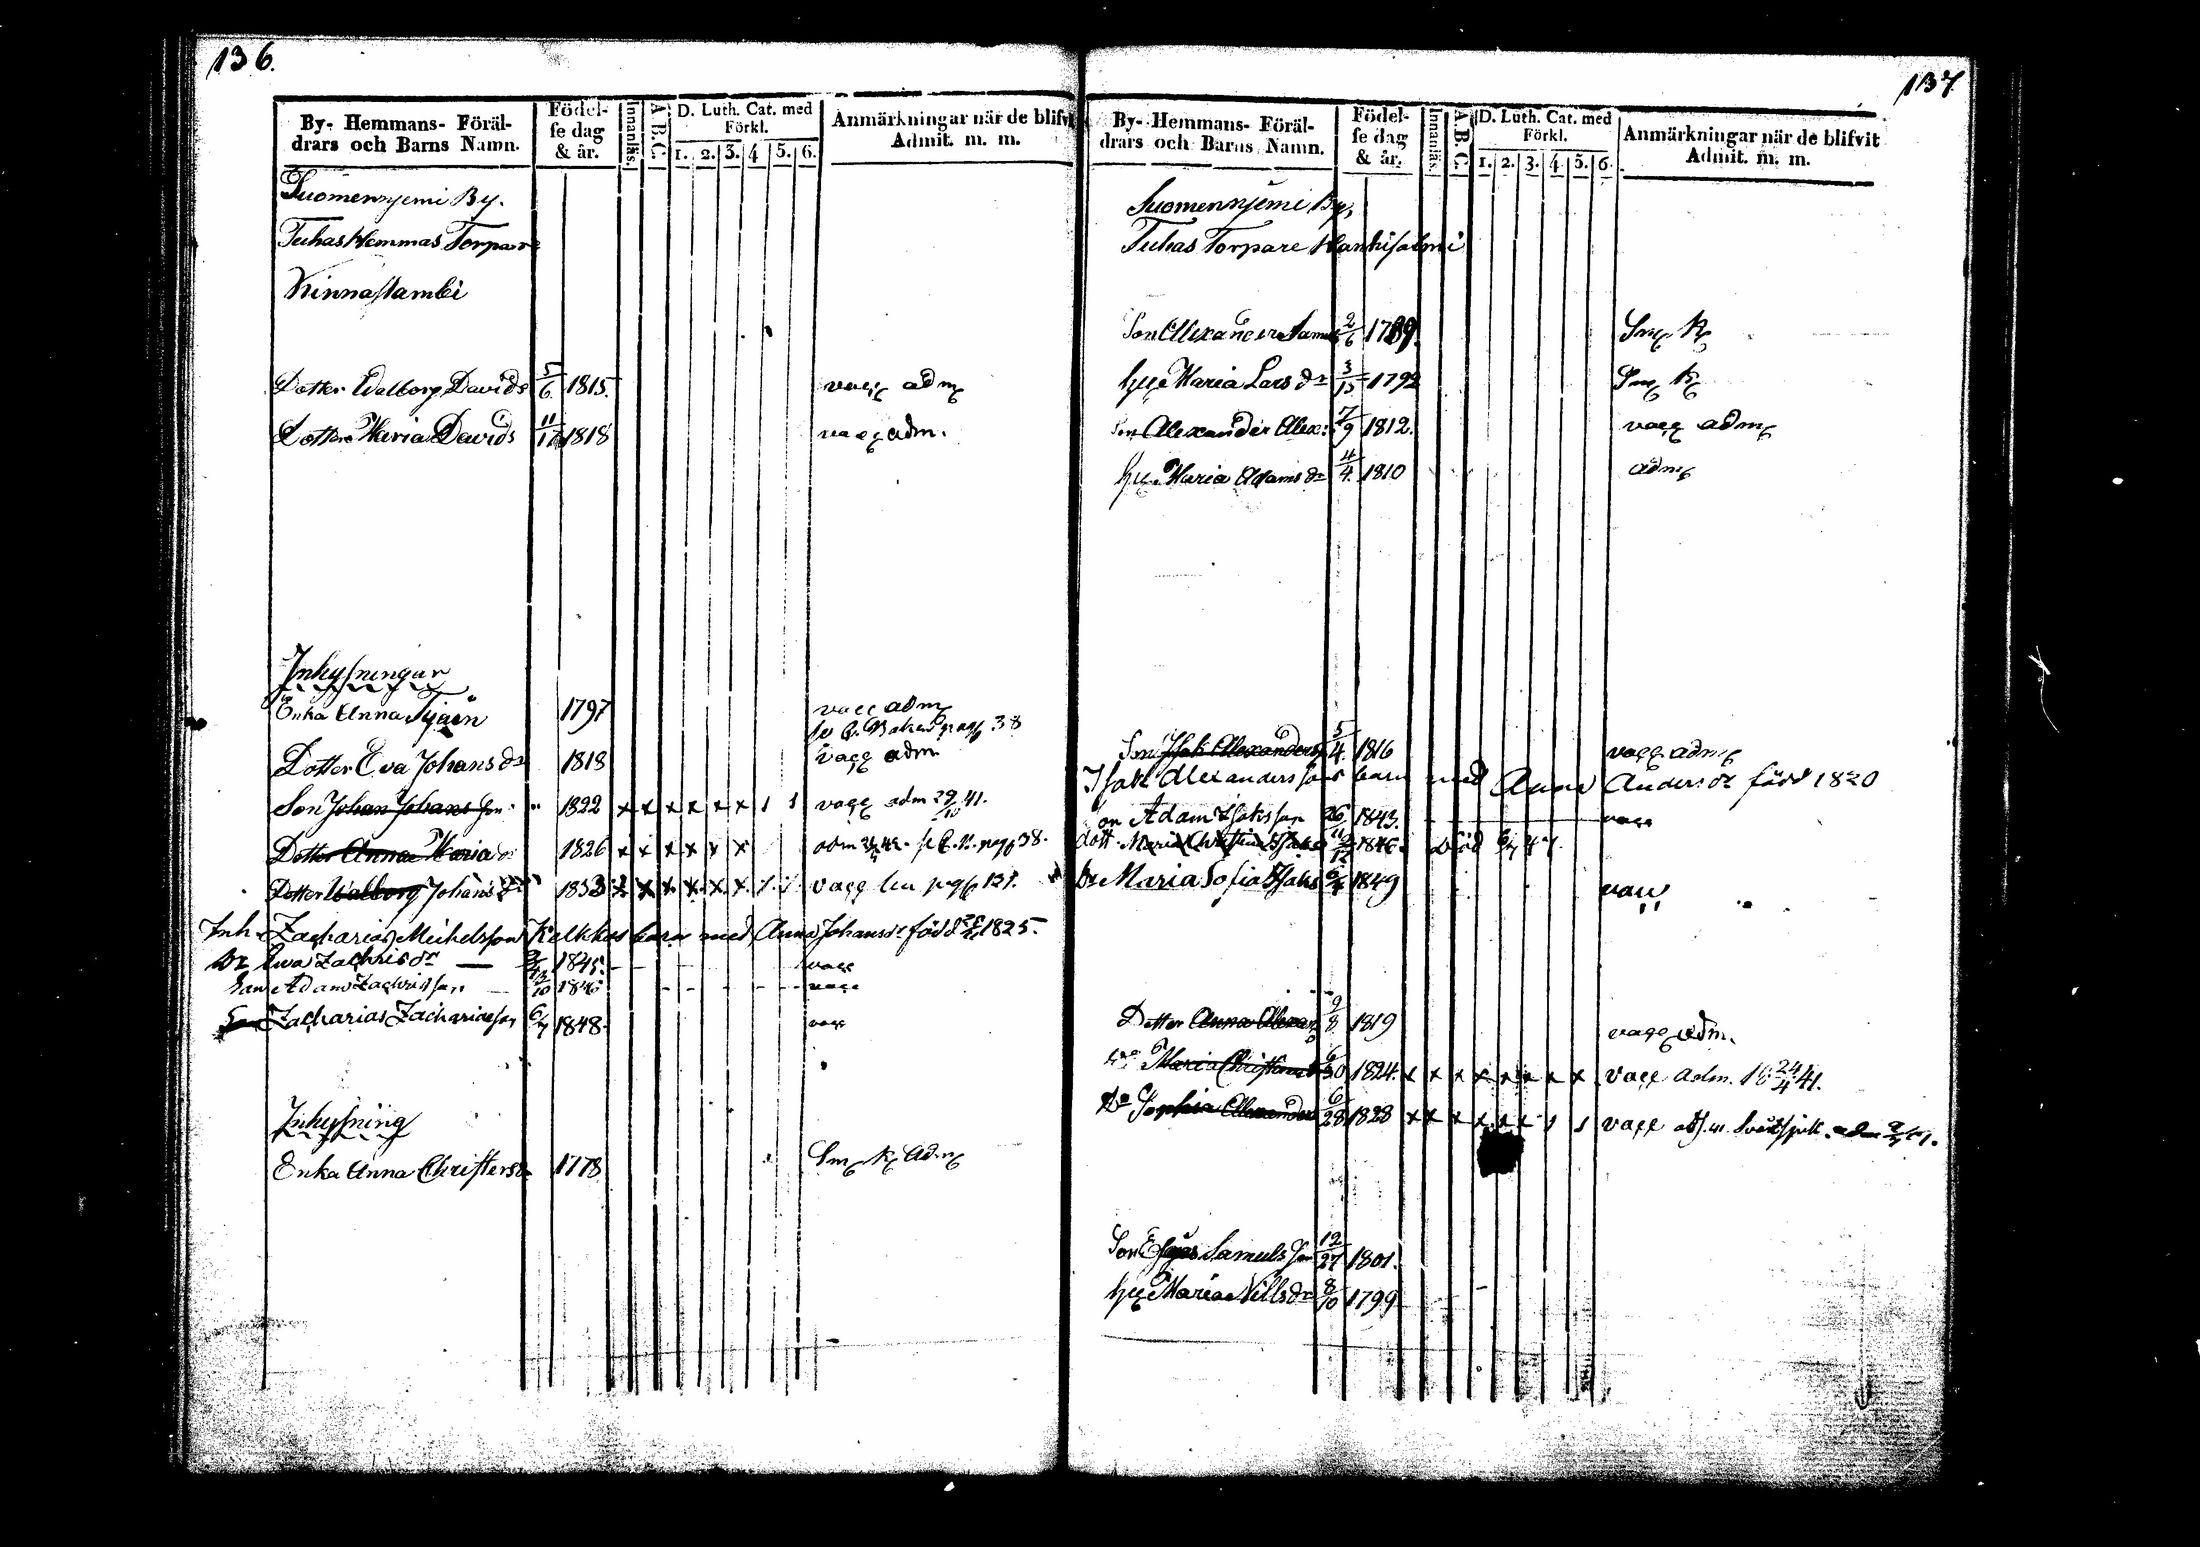 136.
By- Hemmans- Föräl-
drars och Barns Namn.
Födel-
se dag
& år.
Innanläs.
A. B. C.
D. Luth. Cat. med
Förkl.
1. 2. 3. 4 5. 6.
Anmärkningar när de blifvi
Admit. m. m.
Suomenniemi By.
Tuhas Hemmas Torpare
Kinnaslambi
Dotter Walborg Davids 5/6 1815. vacc adm
Dotter Maria Davids 11/12 1818 vacc adm.
Inhysningar
Enka Anna 1797 vacc adm
pag 38
Dotter Eva Johans dr 1818 vacc adm
Son Johan Johans Son 1822 x x x x x x 1 1 vacc adm 29/10 41.
Dotter Anna Maria 1826 x x x x x x adm pag 38.
Dotter Walborg Johans dr 1833 x x x x x x vacc pag 137.
Inh. Zacharias Michelsson barn med Anna Johansdr född 1825.
Dr Ewa Zachrisdr 1845 vacc
Son Adam Zachrisson 1846 vacc
Son Zacharias Zachariasson 6/7 1848 vacc
Inhysning
Enka Anna Christersdr 1778 Sm K adm
137
By- Hemmans- Föräl-
drars och Barns Namn.
Födel-
se dag
& år.
Innanläs.
A. B. C.
D. Luth. Cat. med
Förkl.
1. 2. 3. 4. 5. 6.
Anmärkningar när de blifvit
Admit. m. m.
Suomenniemi By.
Tuhas Torpare Hankisalmi
Son Allexander Samuels 2/6 1789. Sm K
Hu Maria Lars dr 3/15 1792 Sm K
Son Alexander Alex: 7/9 1812. vacc adm
Hu Maria Adams dr 4/4. 1810 adm
Son Isak Alexanders 5/4. 1816 vacc adm
Isak Alexanderssons barn med Anna Andersdr född 1820
Son Adam Isaksson 26 1843. vacc
dott. Maria Christina Isaks 1846. död 47.
Dr Maria Sofia Isaks 6 1849 vacc
Dotter Anna Alexan 9/8 1819 vacc adm.
Maria Christina 6/30 1824. x x x x x x x x vacc adm. 18 24/4 41.
Do Sophia Allexander 6/28 1828 x x x x x x 1 1 vacc
Son Esaias Samuels Son 12/27 1801.
Hu Maria Nills dr 8/10 1799